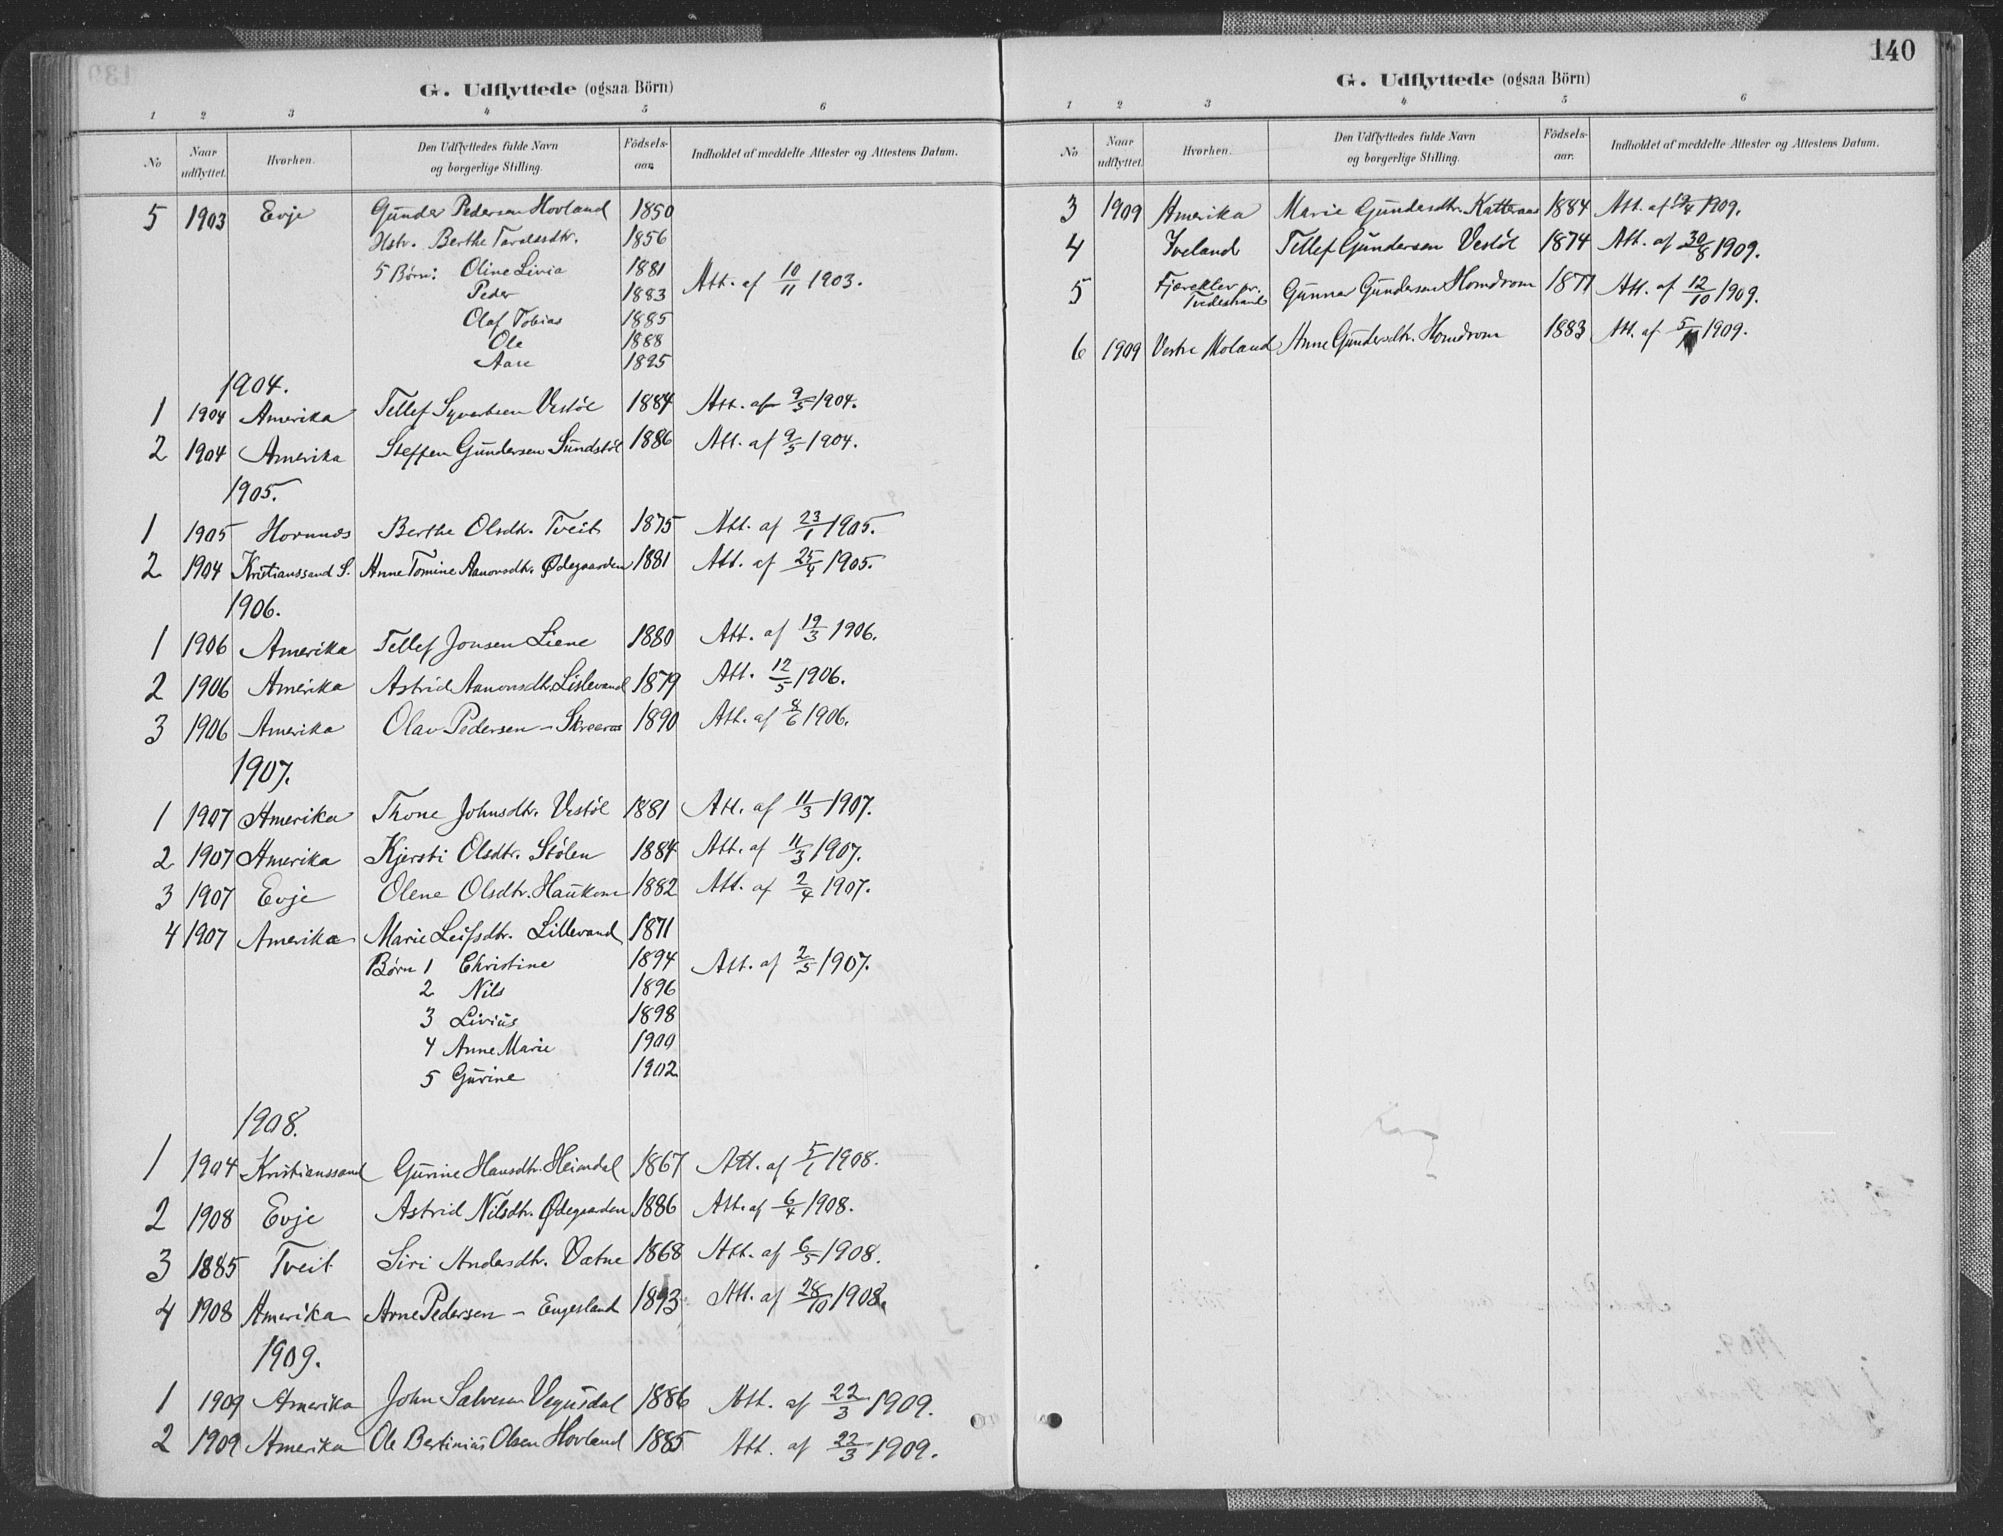 G. Udflyttede (ogsaa Börn)
1 2 3 4 5 6
No Naar udflyttet. Hvorhen. Den Udflyttedes fulde Navn og borgerlige Stilling. Födsels-aar. Indholdet af meddelte Attester og Attestens Datum.
5 1903 Evje Gunder Pedersen Hovland 1850
Hstr. Berthe Taraldsdtr. 1856
5 Børn: Oline Livia 1881 Att. af 10/11 1903.
Peder 1883
Olaf Tobias 1885
Ole 1888
Aase 1895
1904.
1 1904 Amerika Tellef Syvertsen Vestøl 1884 Att. af 9/5 1904.
2 1904 Amerika Steffen Gundersen Sundstøl 1886 Att. af 9/5 1904.
1905.
1 1905 Hornnes Berthe Olsdtr. Tveit 1875 Att. af 23/1 1905.
2 1904 Kristianssand S. Anne Tomine Aanonsdtr. Ødegaarden 1881 Att. af 25/4 1905.
1906.
1 1906 Amerika Tellef Jonsen Liene 1880 Att. af 19/3 1906.
2 1906 Amerika Astrid Aanonsdtr. Lislevand 1879 Att. 12/5 1906.
3 1906 Amerika Olav Pedersen - Skreeros 1890 Att. af 8/6 1906.
1907.
1 1907 Amerika Thone Johnsdtr. Vestøl 1881 Att. af 11/3 1907.
2 1907 Amerika Kjersti Olsdtr. Stølen 1884 Att. af 11/3 1907.
3 1907 Evje Olene Olsdtr. Haukom 1882 Att. af 2/4 1907.
4 1907 Amerika Marie Leifsdtr. Lillevand 1871
Børn 1 Christine 1894 Att. af 2/5 1907.
2 Nils 1896
3 Livius 1898
4 Anne Marie 1900
5 Gurine 1902
1908.
1 1904 Kristianssand Gurine Hansdtr. Heimdal 1867 Att. af 5/1 1908.
2 1908 Evje Astrid Nilsdtr. Ødegaarden 1886 Att. af 6/4 1908.
3 1885 Tveit Siri Andersdtr. Vatne 1868 Att. af 6/5 1908.
4 1908 Amerika Arne Pedersen - Engesland 1893 Att. af 28/10 1908.
1909.
1 1909 Amerika John Salvesen Vegusdal 1886 Att. af 22/3 1909.
2 1909 Amerika Ole Bertinius Olsen Hovland 1885 Att. af 22/3 1909.
140
G. Udflyttede (ogsaa Börn)
1 2 3 4 5 6
No Naar udflyttet. Hvorhen. Den Udflyttedes fulde Navn og borgerlige Stilling. Födsels-aar. Indholdet af meddelte Attester og Attestens Datum.
3 1909 Amerika Marie Gundersdtr. Katteraas 1884 Att. af 1909.
4 Iveland Tellef Gundersen Vestøl 1874 Att. af 30/8 1909.
5 Tvedestrand Gunnar Gundersen Homdrom 1877 Att. af 12/10 1909.
6 1909 Vestre Moland Anne Gundersdtr. Homdrom 1883 Att. af 1909.